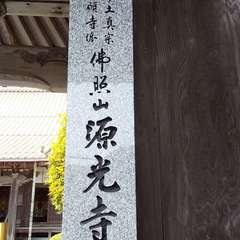 土真宗
願寺派
佛照山源光寺